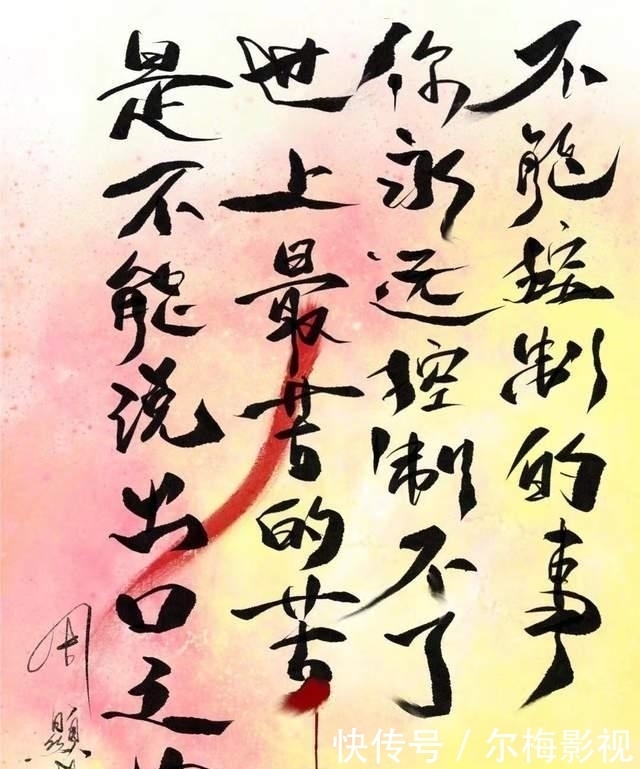 不能控制的事
你永远控制不了
世上最苦的苦
是不能说出口之
周
题
快传号 / 尔梅影视